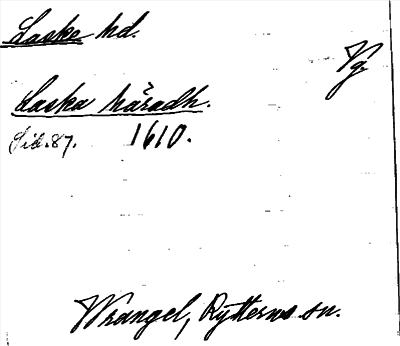 Laske hd.
Vg
Laska häradh.
Lib. 87. 1610.
Wrangel, Rytterns sn.